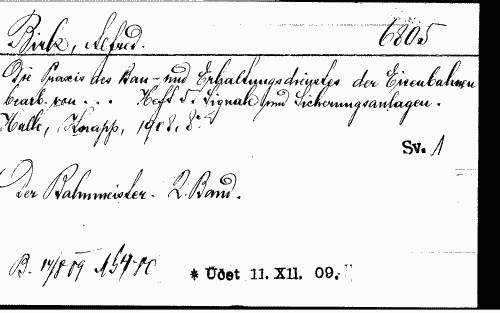 Birk, Alfred. 6805
Die Praxis des Bau- und Erhaltungsdienstes der Eisenbahnen
bearb. von ... Heft 5. Signale und Sicherungsanlagen.
Halle, Knapp, 1908. 8°
Sv. 1
Der Bahnmeister. 2. Band.
B. 14/8 09
* Účet 11. XII. 09.